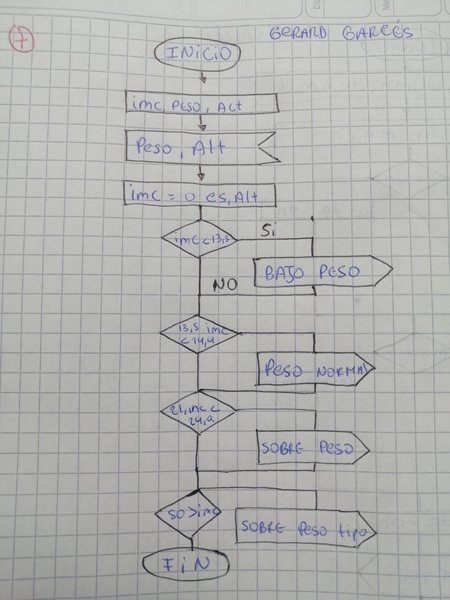 7
GERARD GARCÉS
INICIO
imc, Peso, Alt
Peso, Alt
imc = 0 es, Alt
imc < 13,5
Si
BAJO PESO
NO
13,5 imc
< 14,4
Peso NORMAL
21, imc <
24,9
SOBRE PESO
50 > imc
SOBRE PESO tipo
FiN